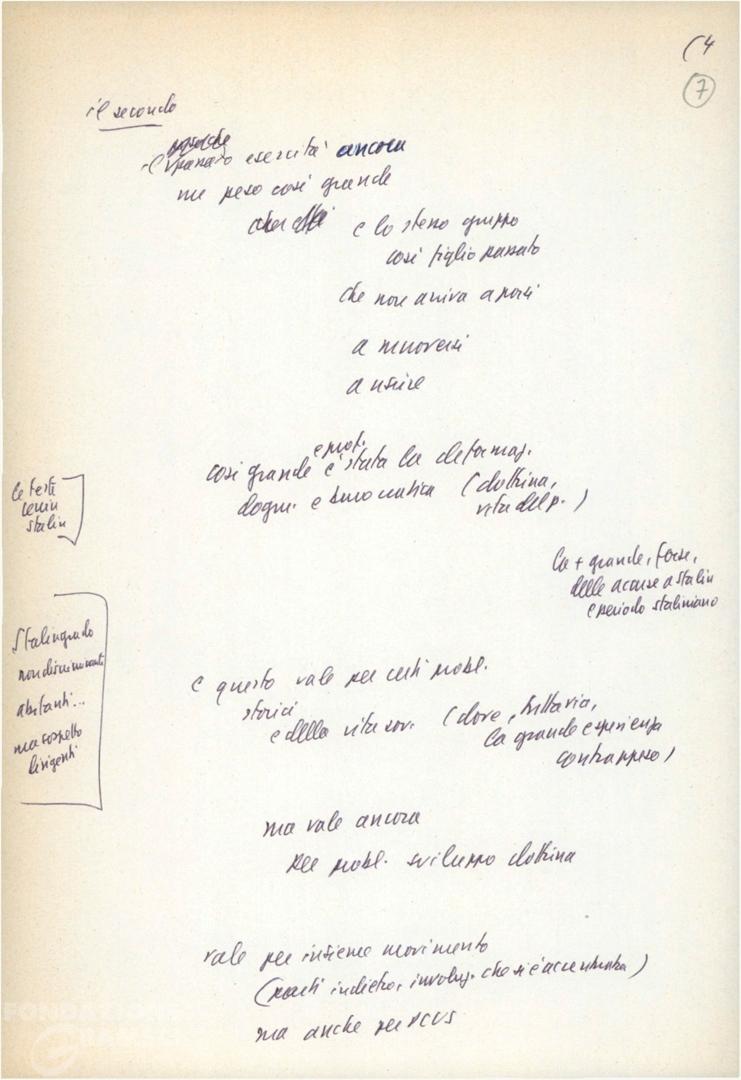 (4
7
il secondo
il passato esercita ancora
un peso così grande
e lo stesso gruppo
così figlio passato
che non arriva a porsi
a muoversi
a uscire
e prof.
così grande è stata la deformaz.
dogm. e burocratica (dottrina,
vita del p.)
le teste
Lenin
Stalin
la + grande, forse,
delle accuse a Stalin
e periodo staliniano
Stalingrado
non discriminanti
abitanti...
ma sospetto
dirigenti
e questo vale per certi probl.
storici
e della vita sov. (dove, tuttavia,
la grande esperienza
contrappeso)
ma vale ancora
per probl. sviluppo dottrina
vale per insieme movimento
(passi indietro, involuz. che si è accentuata)
ma anche per PCUS
FONDAZIONE
GRAMSCI